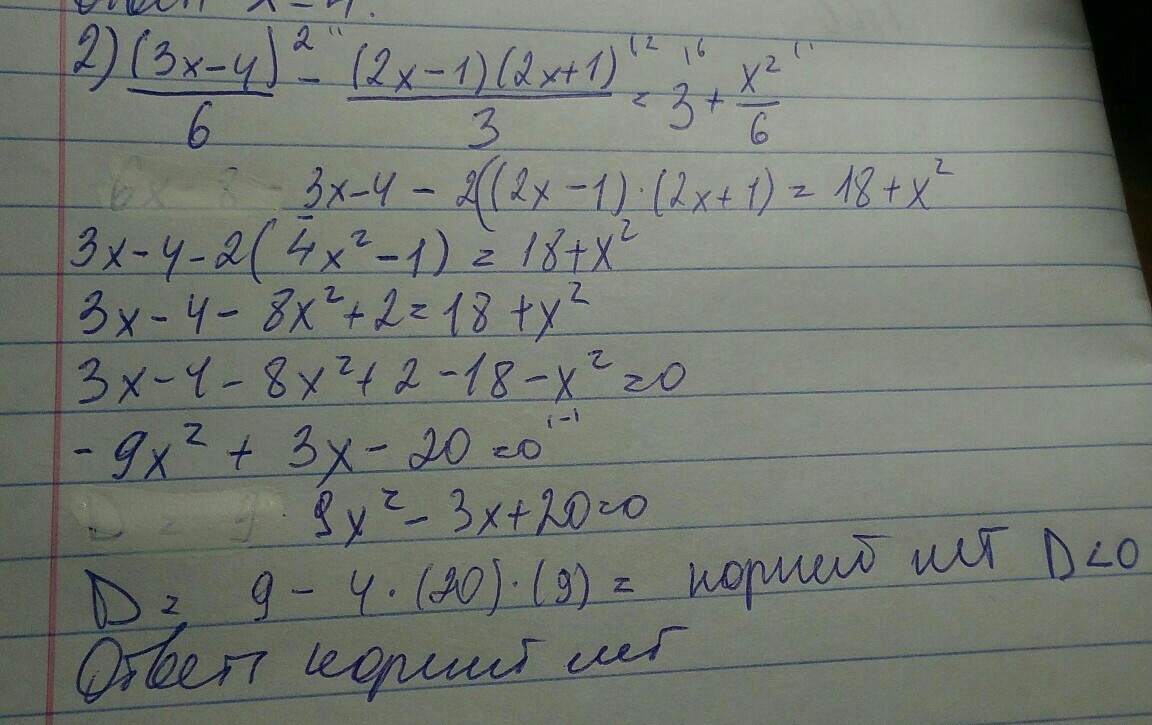 Ответ x = 4.
2) (3x-4)²/6 - (2x-1)(2x+1)/3 = 3 + x²/6
3x-4 - 2((2x-1)·(2x+1) = 18+x²
3x-4-2(4x²-1) = 18+x²
3x-4-8x²+2=18+x²
3x-4-8x²+2-18-x²=0
-9x²+3x-20=0 |·-1
9x²-3x+20=0
D= 9-4·(20)·(9)= корней нет D<0
Ответ корней нет